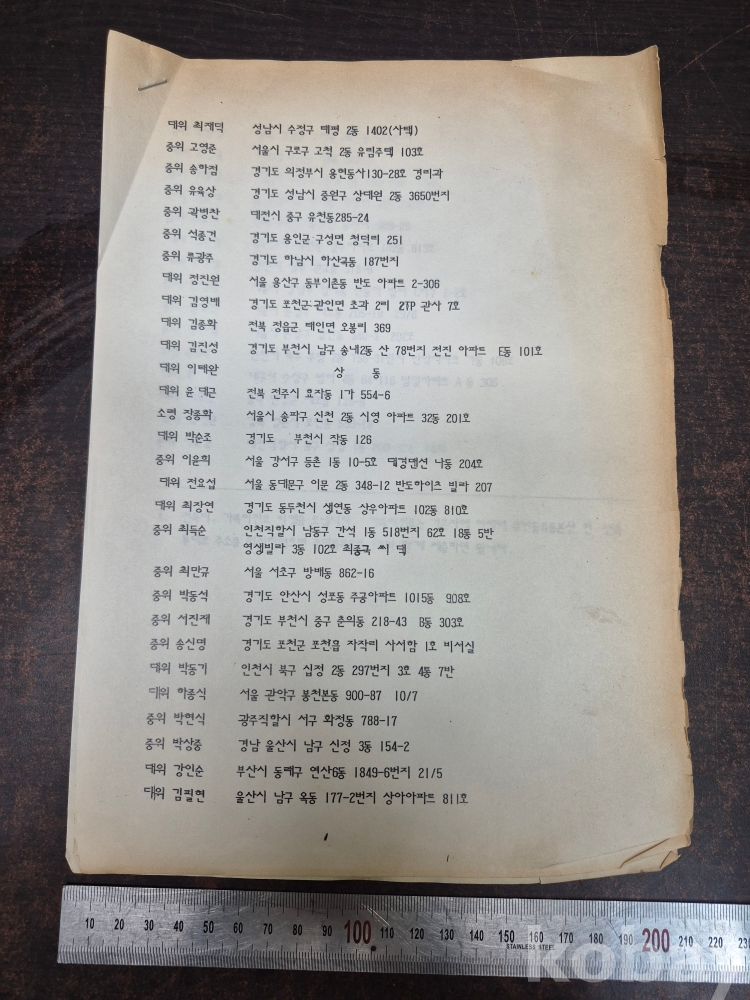 대위 최재덕 성남시 수정구 태평 2동 1402(사백)
중위 고영준 서울시 구로구 고척 2동 유림주택 103호
중위 송하점 경기도 의정부시 용현동산130-28호 경리과
중위 유육상 경기도 성남시 중원구 상대원 2동 3650번지
중위 곽병찬 대전시 중구 유천동285-24
중위 석종건 경기도 용인군 구성면 청덕리 251
중위 류광주 경기도 하남시 하산곡동 187번지
대위 정진원 서울 용산구 동부이촌동 반도 아파트 2-306
대위 김영배 경기도 포천군 관인면 초과 2리 2TP 관사 7호
대위 김종확 전북 정읍군 태인면 오봉리 369
대위 김진성 경기도 부천시 남구 송내2동 산 78번지 전진 아파트 E동 101호
대위 이태완 상 동
대위 윤 대근 전북 전주시 효자동 1가 554-6
소령 장종확 서울시 송파구 신천 2동 시영 아파트 32동 201호
대위 박순조 경기도 부천시 작동 126
중위 이윤희 서울 강서구 등촌 1동 10-5호 대경맨션 나동 204호
대위 전요섭 서울 동대문구 이문 2동 348-12 반도하이츠 빌라 207
대위 최장연 경기도 동두천시 생연동 상우아파트 102동 810호
중위 최득순 인천직할시 남동구 간석 1동 518번지 62호 18통 5반
영생빌라 3동 102호 최종국 씨 댁
중위 최만규 서울 서초구 방배동 862-16
중위 박동석 경기도 안산시 성포동 주공아파트 1015동 908호
중위 서진재 경기도 부천시 중구 춘의동 218-43 B동 303호
중위 송신명 경기도 포천군 포천읍 자작리 사서함 1호 비서실
대위 박동기 인천시 북구 십정 2동 297번지 3호 4통 7반
대위 하종식 서울 관악구 봉천본동 900-87 10/7
중위 박현식 광주직할시 서구 화정동 788-17
중위 박상중 경남 울산시 남구 신정 3동 154-2
대위 강인순 부산시 동래구 연산6동 1849-6번지 21/5
대위 김필현 울산시 남구 옥동 177-2번지 상아아파트 811호
10 20 30 40 50 60 70 80 90 100 110 120 130 140 150 160 170 180 190 200 210 220 230
STAINLESS STEEL
kobay